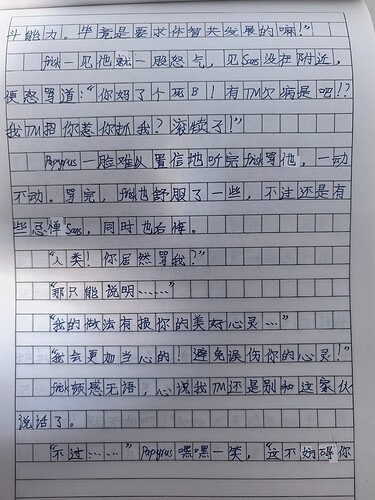 斗能力。毕竟是要求体智共发展的嘛！”
frisk一见他就一股怒气，见Sans没在附近，
便怒骂道：“你妈了个死B！有TM欠病是吧！？
我TM招你惹你抓我？滚犊子！”
Papyrus一脸难以置信地听完frisk骂他，一动
不动。骂完，frisk也舒服了一些，不过还是有
些忌惮Sans，同时也后悔。
“人类！你居然骂我？”
“那只能说明……”
“我的做法有损你的美好心灵…”
“我会更加当心的！避免误伤你的心灵！”
frisk顿感无语，心说我TM还是别和这家伙
说话了。
“不过……”Papyrus嘿嘿一笑，“这不妨碍你